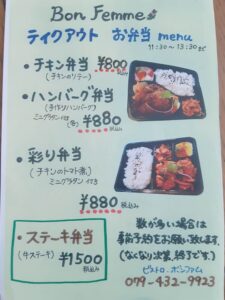 Bon Femme
テイクアウト お弁当 menu
11:30〜13:30まで
・チキン弁当 ¥800税込み
(チキンのソテー)
・ハンバーグ弁当
(手作りハンバーグ)
ミニグラタン付き
¥880税込み
・彩り弁当
(チキンのトマト煮)
ミニグラタン付き
¥880税込み
・ステーキ弁当
(牛ステーキ)
¥1500
税込み
数が多い場合は
事前予約をお願い致します。
(なくなり次第、終了です。)
ビストロ・ボンファム
079-432-9923